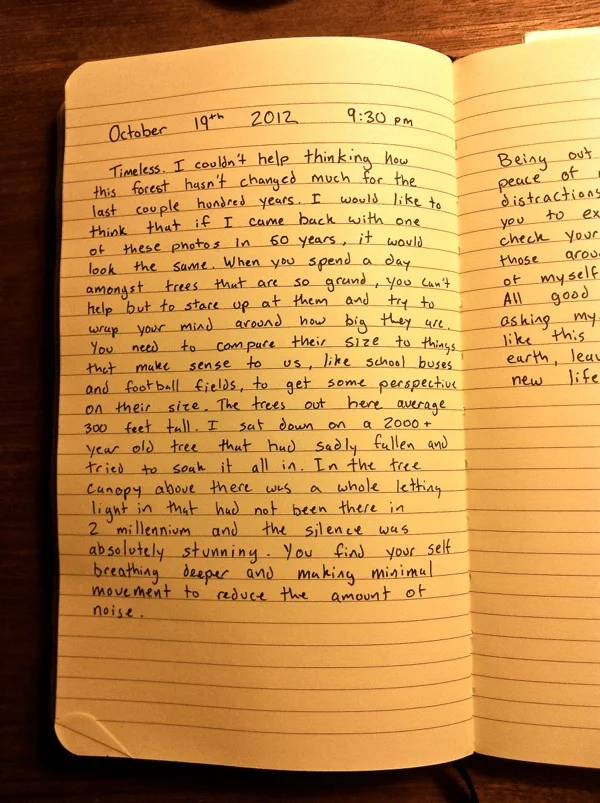 October 19th 2012 9:30 pm
Timeless. I couldn't help thinking how
this forest hasn't changed much for the
last couple hundred years. I would like to
think that if I came back with one
of these photos in 50 years, it would
look the same. When you spend a day
amongst trees that are so grand, you can't
help but to stare up at them and try to
wrap your mind around how big they are.
You need to compare their size to things
that make sense to us, like school buses
and football fields, to get some perspective
on their size. The trees out here average
300 feet tall. I sat down on a 2000+
year old tree that had sadly fallen and
tried to soak it all in. In the tree
canopy above there was a whole letting
light in that had not been there in
2 millennium and the silence was
absolutely stunning. You find your self
breathing deeper and making minimal
movement to reduce the amount of
noise.
Being out
peace of
distractions
you to ex
check your
those arou
of myself
All good
asking my
like this
earth, leav
new life